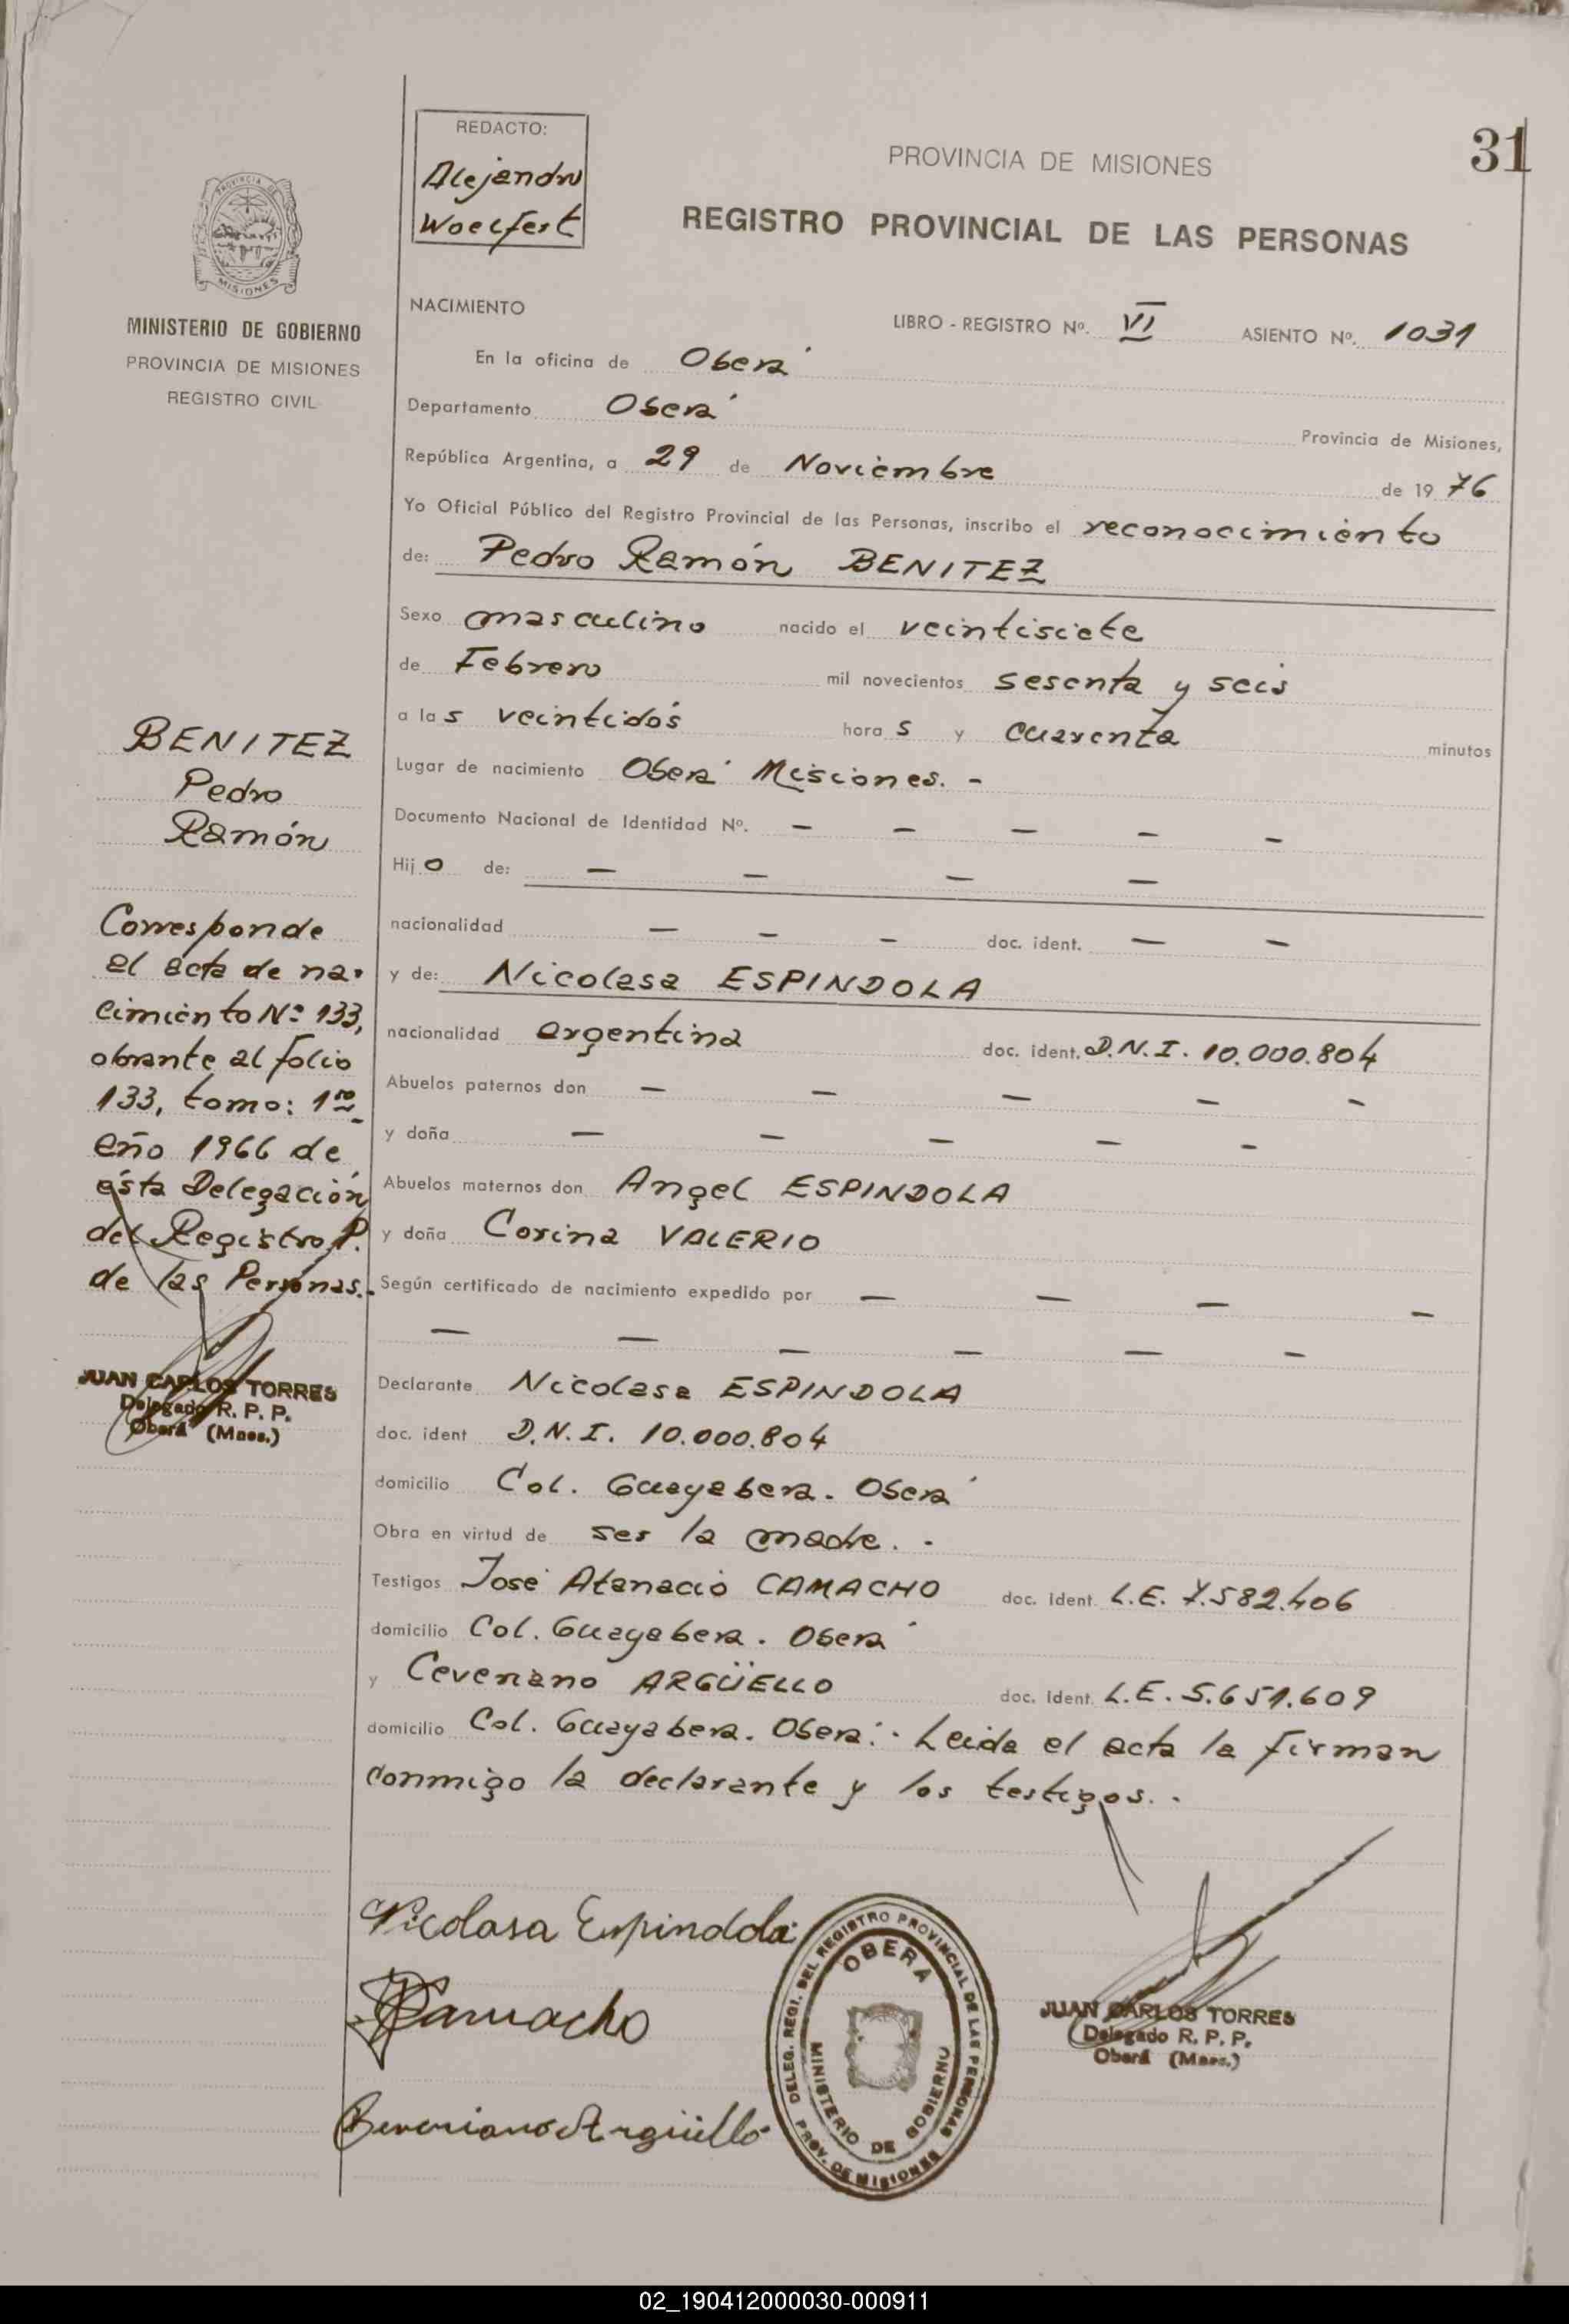 REDACTO:
Alejandro
Woelfert
31
PROVINCIA DE MISIONES
REGISTRO PROVINCIAL DE LAS PERSONAS
PROVINCIA DE
MISIONES
MINISTERIO DE GOBIERNO
PROVINCIA DE MISIONES
REGISTRO CIVIL
NACIMIENTO
LIBRO - REGISTRO Nº. VI ASIENTO Nº. 1031
En la oficina de Oberá
Departamento Oberá Provincia de Misiones,
República Argentina, a 29 de Noviembre de 19 76
Yo Oficial Público del Registro Provincial de las Personas, inscribo el reconocimiento
de: Pedro Ramón BENITEZ
Sexo masculino nacido el veintisiete
de Febrero mil novecientos sesenta y seis
a las veintidós horas y cuarenta minutos
Lugar de nacimiento Oberá Misiones. -
Documento Nacional de Identidad Nº. - - - - -
Hijo de: - - - -
nacionalidad - - - doc. ident. - -
y de: Nicolasa ESPINDOLA
nacionalidad argentina doc. ident. D.N.I. 10.000.804
Abuelos paternos don - - - - -
y doña - - - - -
Abuelos maternos don Angel ESPINDOLA
y doña Corina VALERIO
Según certificado de nacimiento expedido por - - - -
- - - - - -
Declarante Nicolasa ESPINDOLA
doc. ident D.N.I. 10.000.804
domicilio Col. Guayabera. Oberá
Obra en virtud de ser la madre. -
Testigos José Atanacio CAMACHO doc. ident. L.E. 7.582.406
domicilio Col. Guayabera. Oberá
y Ceveriano ARGÜELLO doc. ident. L.E. 5.651.609
domicilio Col. Guayabera. Oberá.- Leida el acta la firman
conmigo la declarante y los testigos. -
BENITEZ
Pedro
Ramón
Corresponde
al acta de na-
cimiento Nº 133,
obrante al folio
133, tomo: 1ro
año 1966 de
ésta Delegación
del Registro P.
de las Personas.-
JUAN CARLOS TORRES
Delegado R. P. P.
Oberá (Mnes.)
Nicolasa Espindola
Camacho
Ceveriano Argüello
DELEG. REGI. DEL REGISTRO PROVINCIAL DE LAS PERSONAS
PROV. DE MISIONES
OBERA
MINISTERIO DE GOBIERNO
JUAN CARLOS TORRES
Delegado R. P. P.
Oberá (Mnes.)
02_190412000030-000911